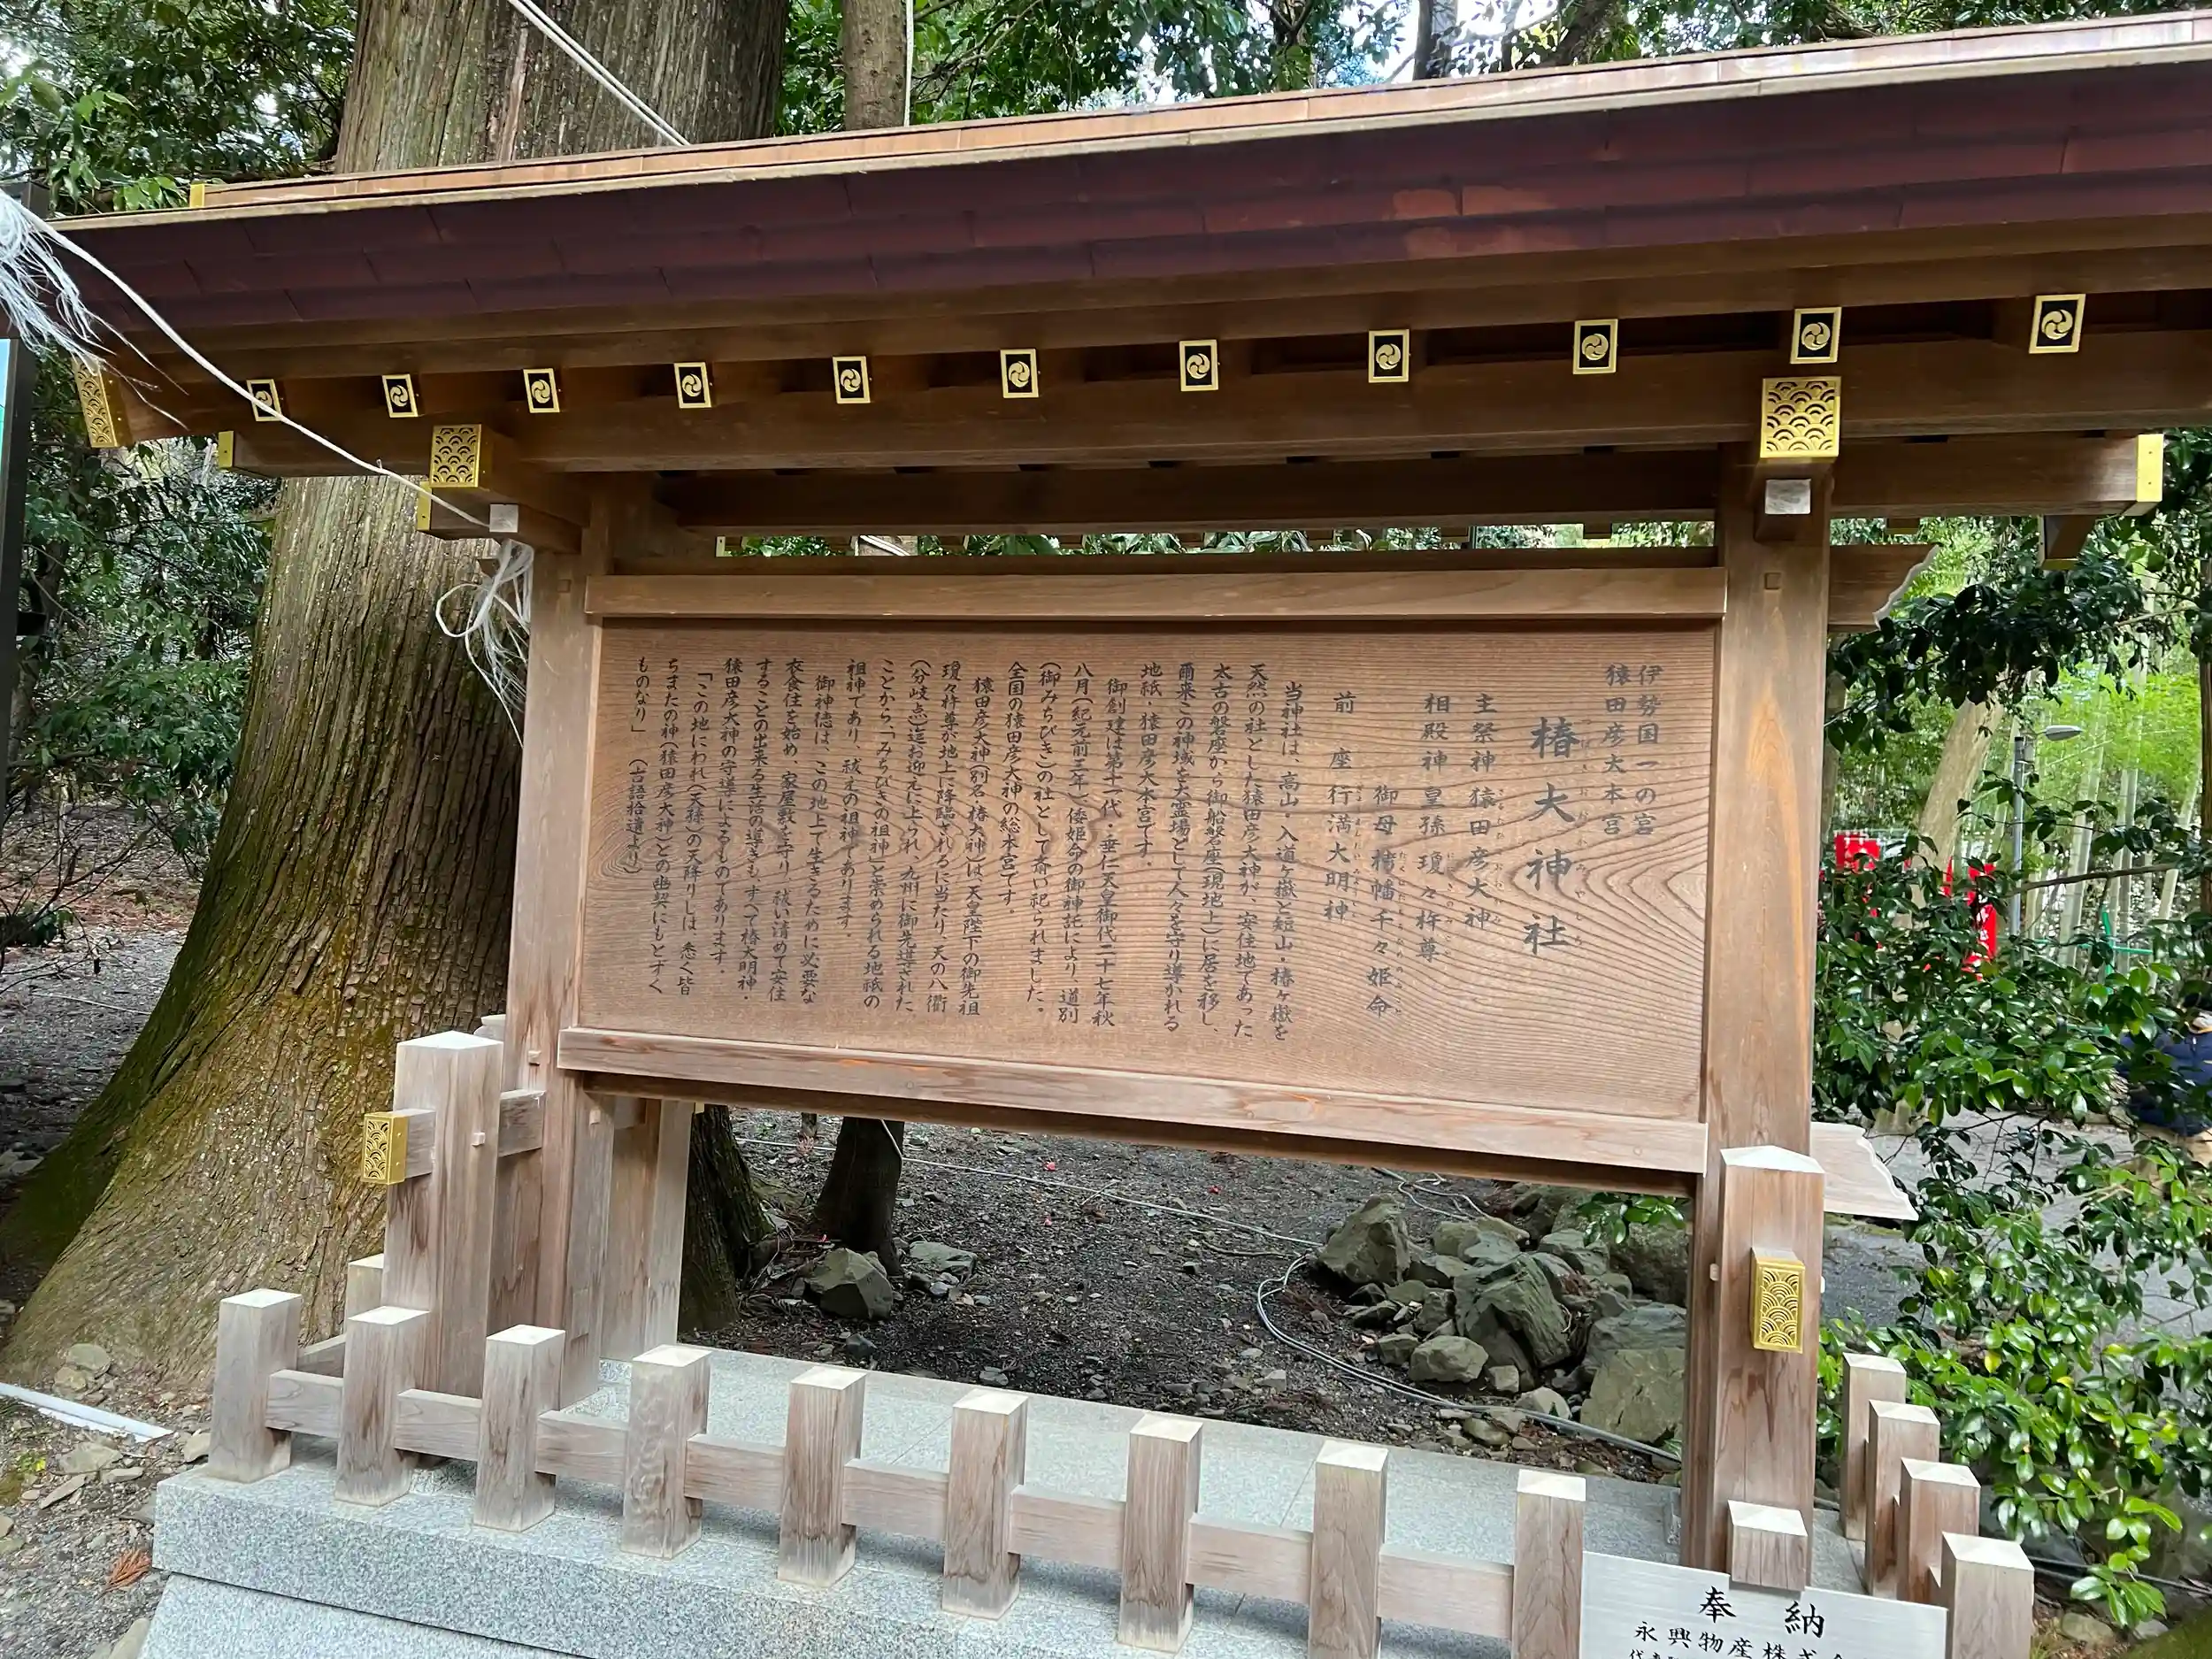 伊勢国一の宮
猿田彦大本宮
椿大神社
主祭神 猿田彦大神
相殿神 皇孫 瓊々杵尊
御母 栲幡千々姫命
前座 行満大明神
当神社は、高山・入道ヶ嶽と短山・椿ヶ嶽を
天然の社とした猿田彦大神が、安住地であった
太古の磐座から御船磐座(現地上)に居を移し、
爾来この神域を大霊場として人々を守り導かれる
地祇・猿田彦大本宮です。
御創建は第十一代・垂仁天皇御代二十七年秋
八月(紀元前三年)倭姫命の御神託により、道別
(御みちびき)の社として斎い祀られました。
全国の猿田彦大神の総本宮です。
猿田彦大神(別名 椿大神)は、天皇陛下の御先祖
瓊々杵尊が地上に降臨されるに当たり、天の八衢
(分岐点)迄お迎えに上られ、九州に御先導された
ことから、「みちびきの祖神」と崇められる地祇の
祖神であり、祓えの祖神であります。
御神徳は、この地上で生きるために必要な
衣食住を始め、家屋敷を守り、祓い清めて安住
することの出来る生活の導きも、すべて椿大明神・
猿田彦大神の守導によるものであります。
「この地にわれ(天孫)の天降りしは、悉く皆
ちまたの神(猿田彦大神)との幽契にもとずく
ものなり」 (古語拾遺より)
奉納
永興物産株式